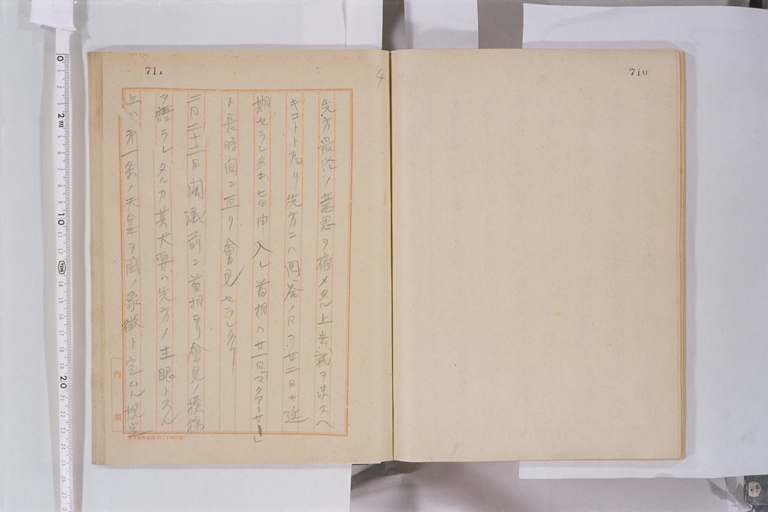 710
711
4
先方最后ノ意思ヲ確メタル上去就ヲ決スヘ
キコトトナリ先方ニハ回答ノ日ヲ廿二日ニ延
期セラレタキ旨申入レ首相ハ廿一日「マクアーサー」
ト長時間ニ亘リ會見セラレタリ
二月二十二日閣議前ニ首相ヨリ會見ノ模様
ヲ語ラレタルカ其大要ハ先方ノ主眼トスル
点ハ第一条ノ天皇ヲ国ノ象徴ト定ムル規定
内閣